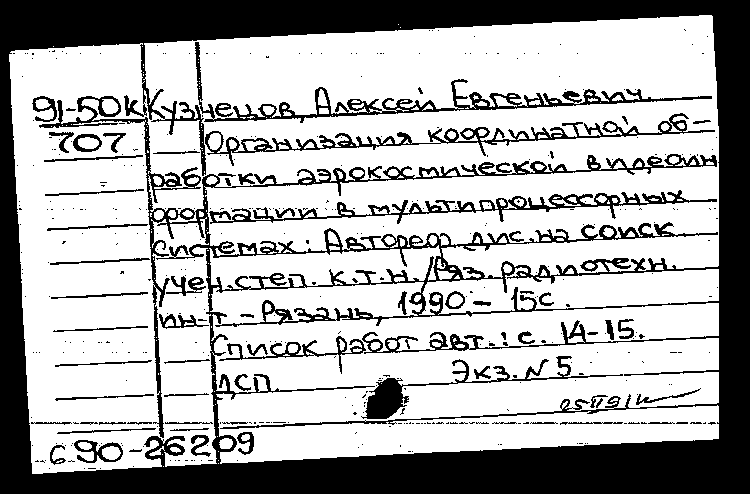 91-50к Кузнецов, Алексей Евгеньевич.
707 Организация координатной об-
работки аэрокосмической видеоин
формации в мультипроцессорных
системах: Автореф. дис. на соиск
учен. степ. к.т.н. /Ряз. радиотехн.
ин-т. - Рязань, 1990. - 15с.
Список работ авт.: с. 14-15.
ДСП. Экз. N 5.
с 90-26209